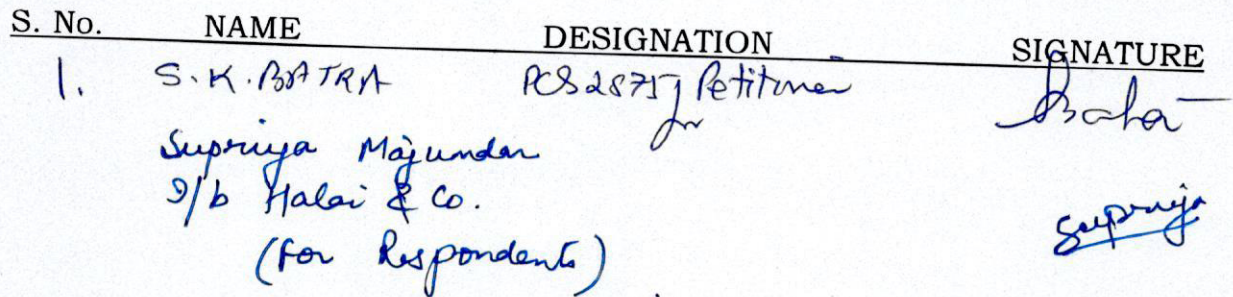 S. No. NAME DESIGNATION SIGNATURE
1. S.K. BATRA PCS 2875 for Petitioner Batra
Supriya Majumdar
I/b Halai & Co. Supriya
(For Respondents)